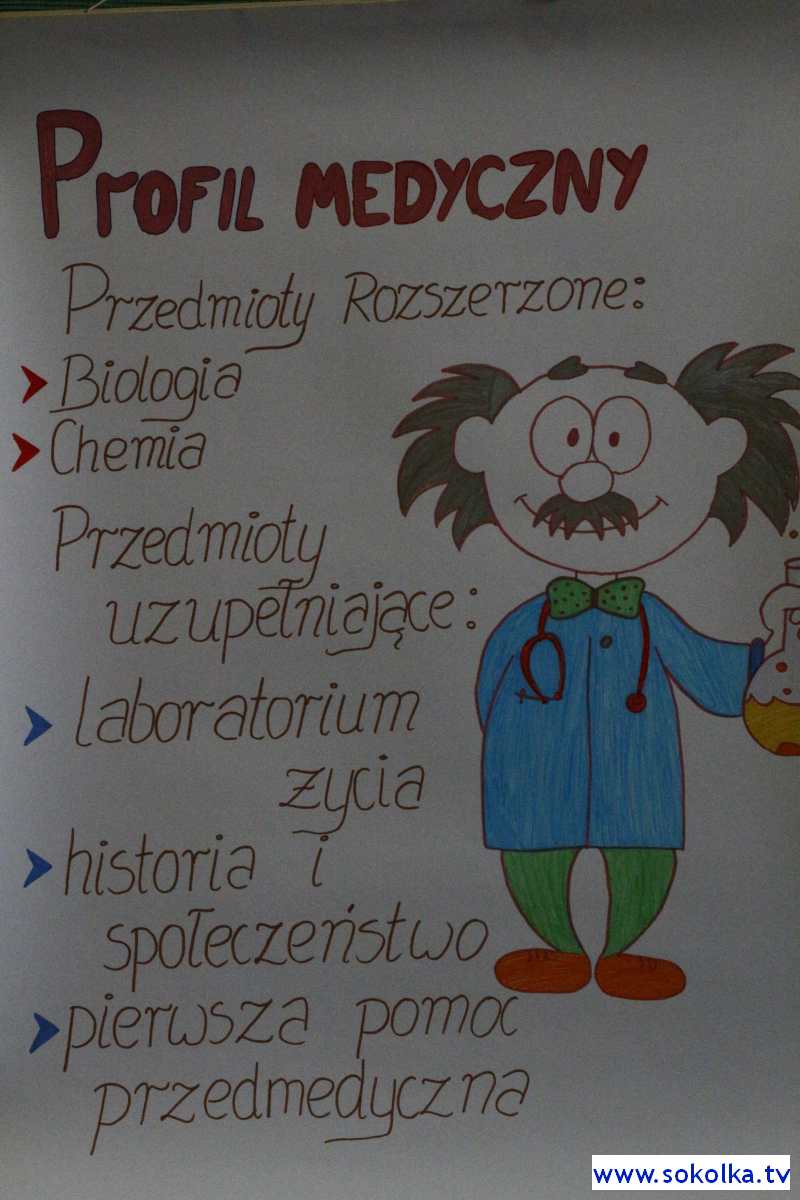 Profil MEDYCZNY
Przedmioty Rozszerzone:
Biologia
Chemia
Przedmioty
uzupełniające:
laboratorium
życia
historia i
społeczeństwo
pierwsza pomoc
przedmedyczna
www.sokolka.tv